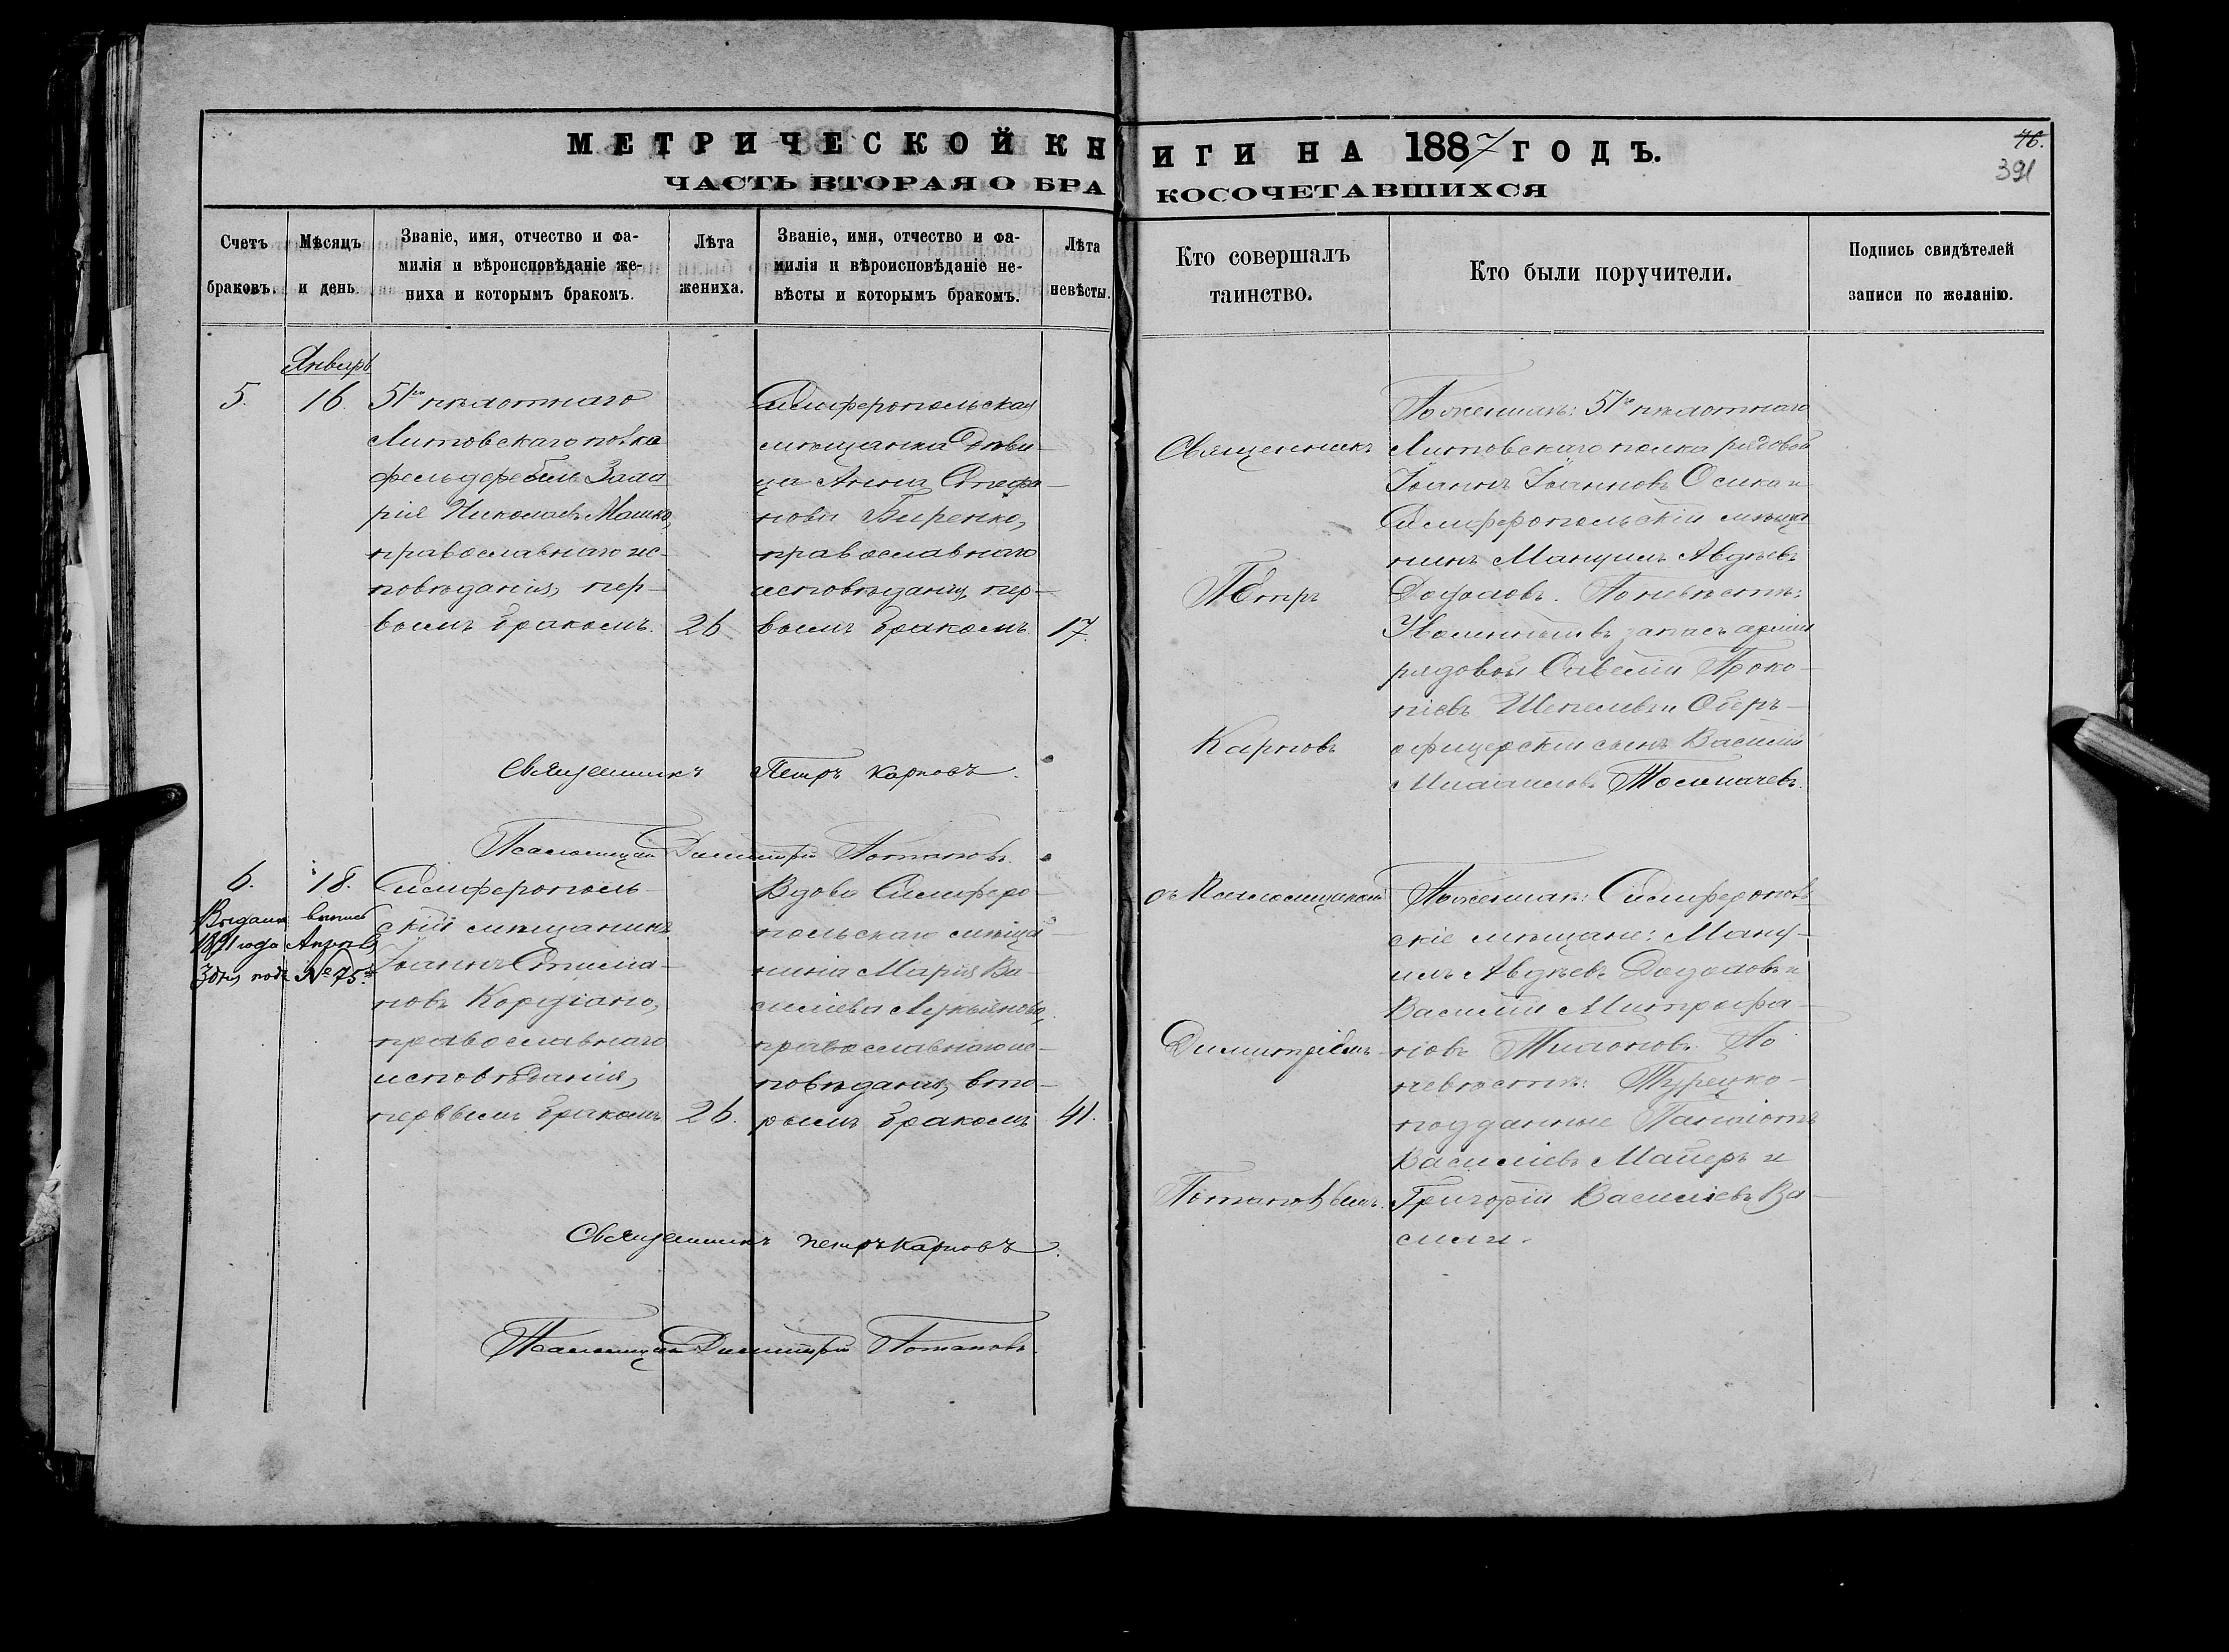 МЕТРИЧЕСКОЙ КНИГИ НА 1887 ГОДЪ.
ЧАСТЬ ВТОРАЯ О БРАКОСОЧЕТАВШИХСЯ
76.
391
Счетъ браковъ.
Мѣсяцъ и день.
Званіе, имя, отчество и фа-
милія и вѣроисповѣданіе же-
ниха и которымъ бракомъ.
Лѣта жениха.
Званіе, имя, отчество и фа-
милія и вѣроисповѣданіе не-
вѣсты и которымъ бракомъ.
Лѣта невѣсты.
Кто совершалъ
таинство.
Кто были поручители.
Подпись свидѣтелей
записи по желанію.
Январь
5.
16.
51го пѣхотнаго
Литовскаго полка
фельдфебель Заха
рій Николаевъ Машко,
православнаго ис-
повѣданія, пер-
вымъ бракомъ.
26
Симферопольская
мѣщанка Дѣви-
ца Анна Стефа-
нова Биренко,
православнаго
исповѣданія, пер-
вымъ бракомъ
17.
Священникъ
Петръ
Карповъ
По женихѣ: 51го пѣхотнаго
Литовскаго полка рядовой
Іоаннъ Іоанновъ Осика и
Симферопольскій мѣща
нинъ Мануилъ Авдѣевъ
По невѣстѣ:
Уволенный въ запасъ арміи
рядовой Савелій Проко-
піевъ Шепелевъ и Оберъ-
офицерскій сынъ Василій
Михаиловъ Толмачевъ.
Священникъ Петръ Карповъ.
Псаломщикъ Димитрій Потаповъ.
6.
18.
Выдана выпись
1891 года Апрѣля
3 дня подъ № 75.
Симферополь-
скій мѣщанинъ
Іоаннъ
новъ
православнаго
исповѣданія,
первымъ бракомъ
26.
Вдова Симферо-
польскаго мѣща-
нина Марія Ва-
силіева Лукьянова,
православнаго ис-
повѣданія, вто-
рымъ бракомъ
41.
съ Псаломщикомъ
Димитріемъ
Потаповымъ.
По женихѣ: Симферополь
скіе мѣщане: Ману-
илъ Авдѣевъ и
Василій Митрофа-
новъ Тихоновъ. По
невѣстѣ: Турецко-
подданные Панаіотъ
Василіевъ Майеръ и
Григорій Василіевъ Ва-
сили.
Священникъ Петръ Карповъ.
Псаломщикъ Димитрій Потаповъ.